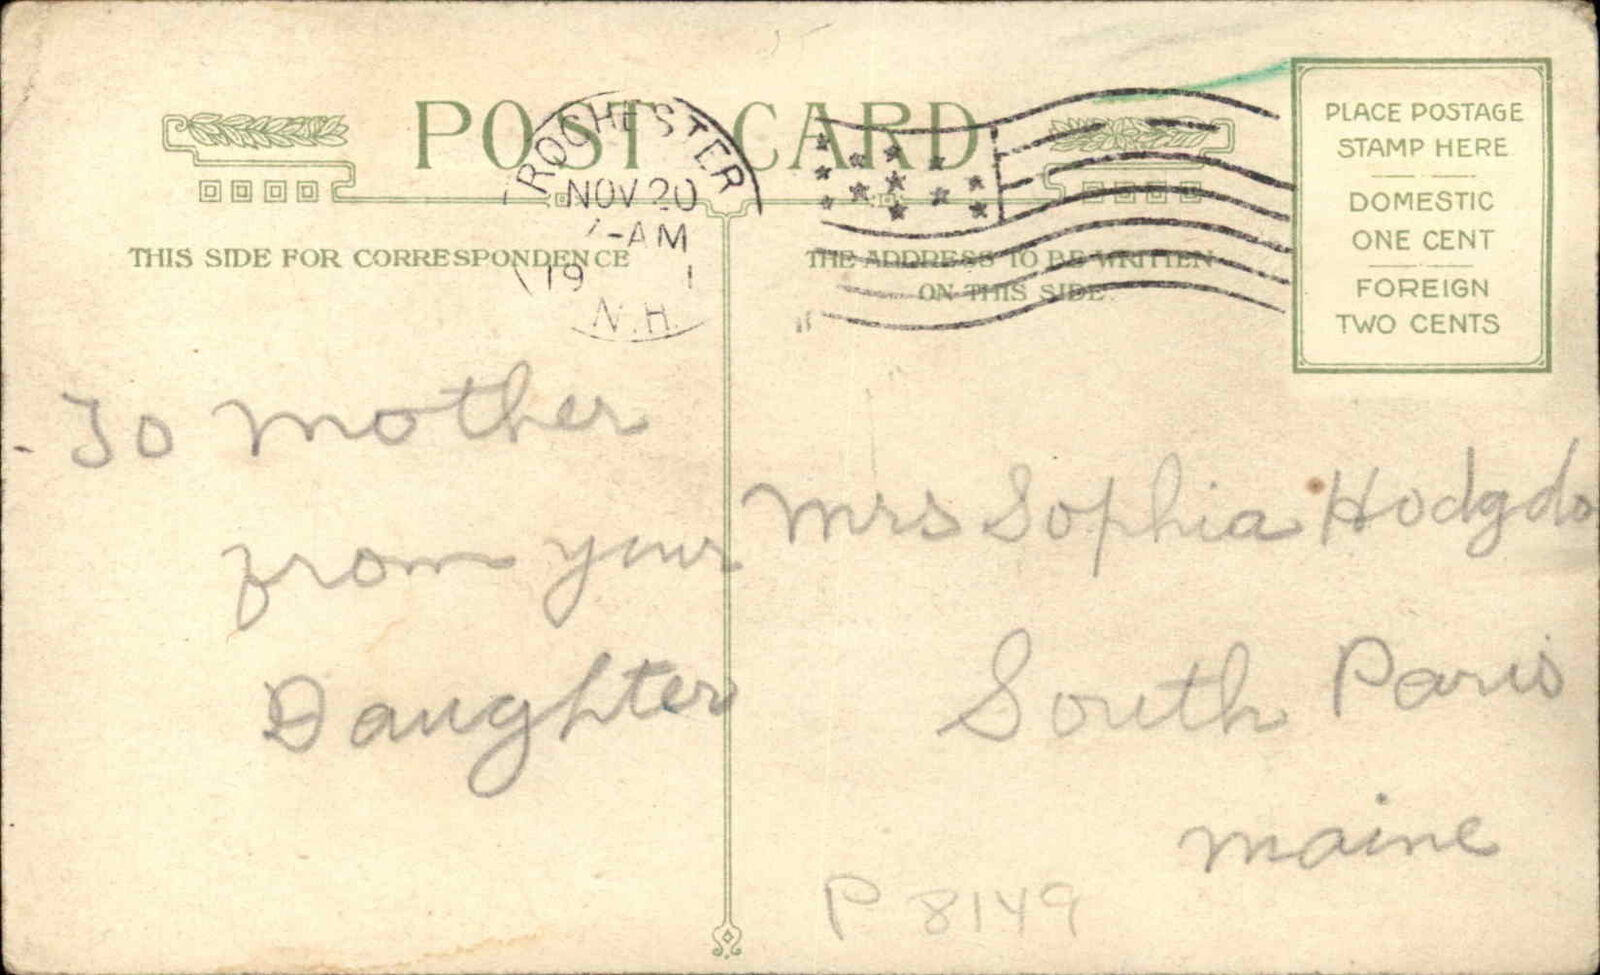 POST CARD
ROCHESTER
NOV 20
-AM
19 1
N.H.
THIS SIDE FOR CORRESPONDENCE
THE ADDRESS TO BE WRITTEN
ON THIS SIDE
PLACE POSTAGE
STAMP HERE
DOMESTIC
ONE CENT
FOREIGN
TWO CENTS
To Mother
from your
Daughter
Mrs Sophia Hodgdo
South Paris
Maine
P 8149